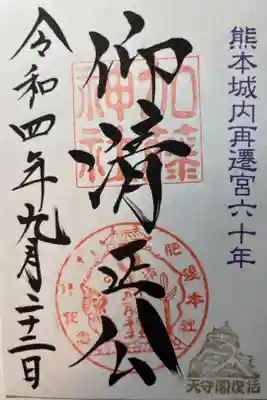 熊本城内再遷宮六十年
加藤神社
仰清正公
肥後本社
天守閣復活
令和四年九月二十三日